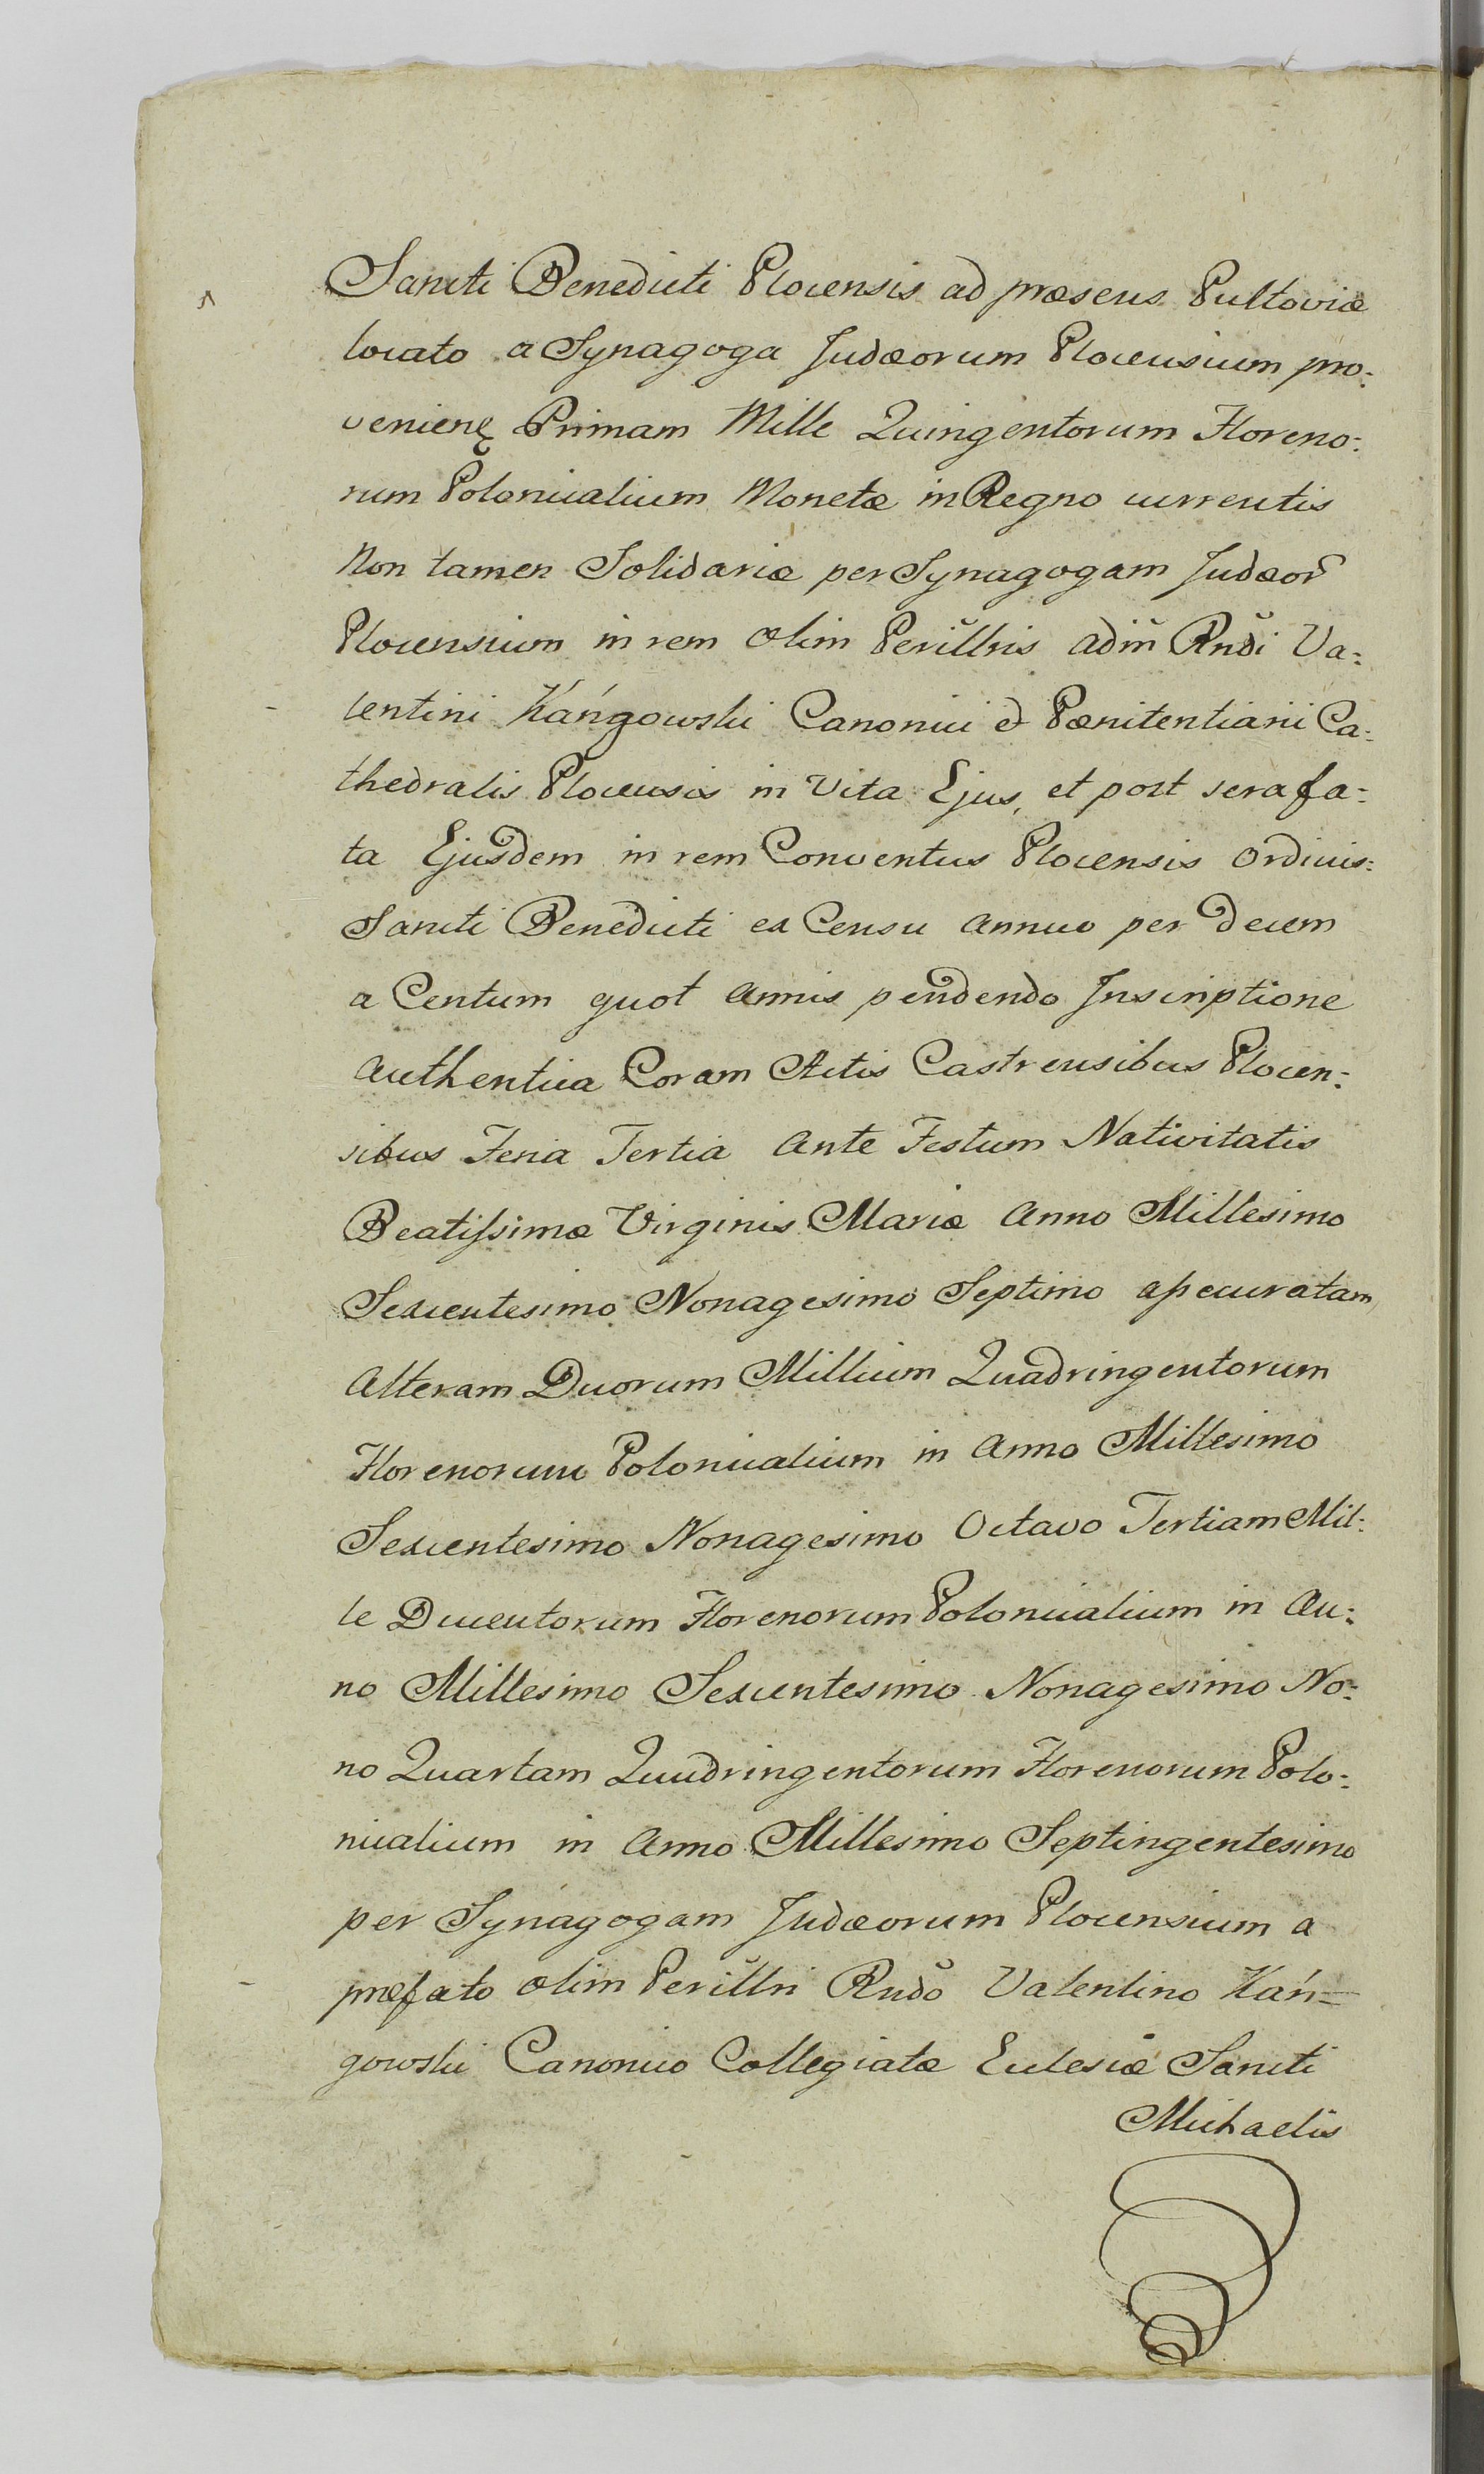 Sancti Benedicti Plocensis ad præsens Pultoviæ
locato a Synagoga Judæorum Plocensium pro:
venienę Primam Mille Quingentorum Floreno:
rum Polonicalium Monetæ in Regno currentis
Non tamen Solidariæ per Synagogam Judæor̃
Plocensium in rem olim Perillris adm̃ Rñdi Va:
lentini Kángowski Canonici et Pœnitentiarii Ca:
thedralis Plocensis in Vita Ejus, et post sera fa:
ta Ejusdem in rem Conventus Plocensis Ordinis:
Sancti Benedicti ex Censu annuo per Decem
a Centum quot annis pendendo Inscriptione
authentica Coram Actis Castrensibus Plocen:
sibus Feria Tertia Ante Festum Nativitatis
Beatiſsimæ Virginis Mariæ Anno Millesimo
Sexcentesimo Nonagesimo Septimo aſsecuratam,
Alteram Duorum Millium Quadringentorum
Florenorum Polonicalium in Anno Millesimo
Sexcentesimo Nonagesimo Octavo Tertiam Mil:
le Ducentorum Florenorum Polonicalium in An:
no Millesimo Sexcentesimo Nonagesimo No:
no Quartam Quadringentorum Florenorum Polo:
nicalium in Anno Millesimo Septingentesimo
per Synagogam Judæorum Plocensium a
præfato olim Perillri Rndo Valentino Kán=
gowski Canonico Collegiatæ Eclesiæ Sancti
Michaelis